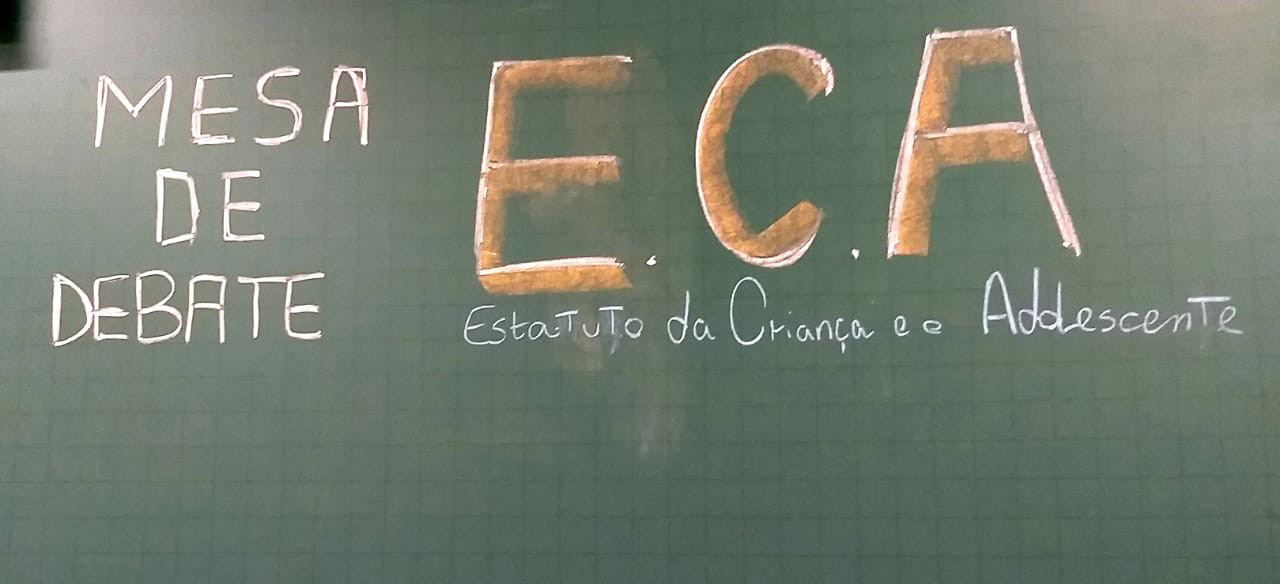 MESA
DE
DEBATE
E.C.A
Estatuto da Criança e o Adolescente